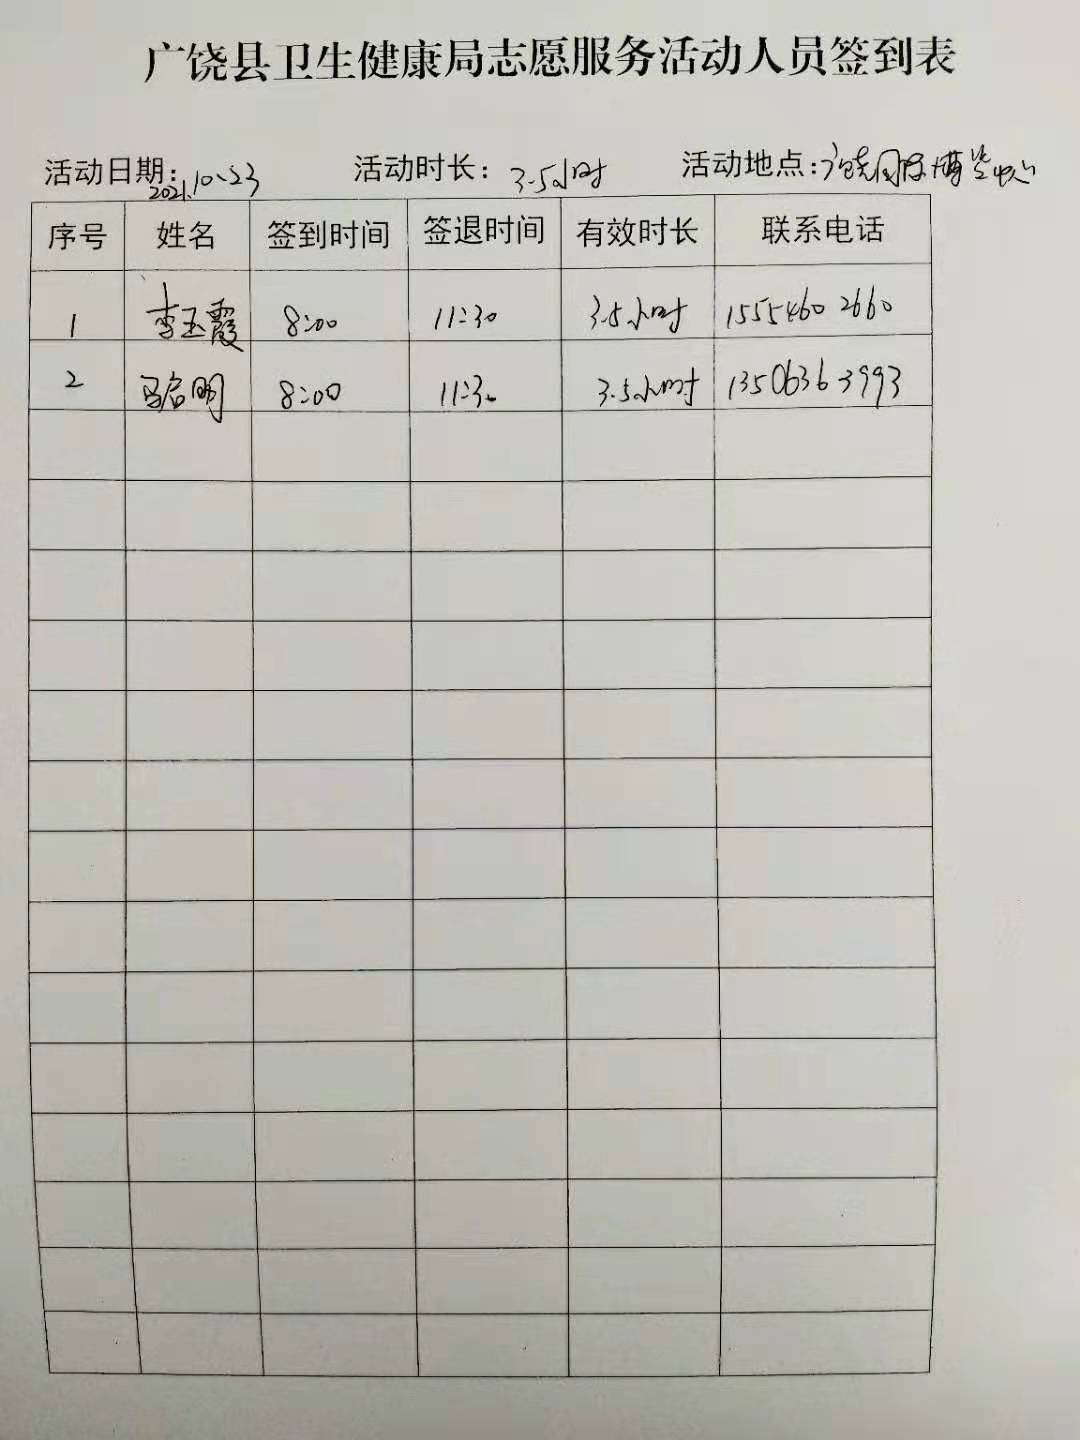 广饶县卫生健康局志愿服务活动人员签到表
活动日期：2021.10.23 活动时长：3.5小时 活动地点：广饶国际博览中心
序号 姓名 签到时间 签退时间 有效时长 联系电话
1 李玉霞 8:00 11:30 3.5小时 15554602660
2 马启明 8:00 11:30 3.5小时 13506363993